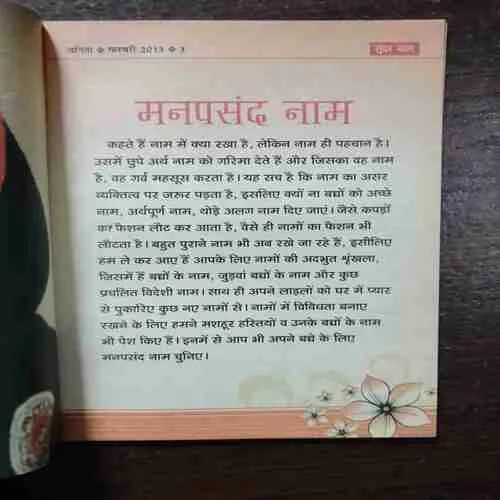 वनिता • फरवरी 2013 • 3
सुंदर नाम
मनपसंद नाम
कहते हैं नाम में क्या रखा है, लेकिन नाम ही पहचान है।
उसमें छुपे अर्थ नाम को गरिमा देते हैं और जिसका वह नाम
है, वह गर्व महसूस करता है। यह सच है कि नाम का असर
व्यक्तित्व पर जरूर पड़ता है, इसलिए क्यों ना बच्चों को अच्छे
नाम, अर्थपूर्ण नाम, थोड़े अलग नाम दिए जाएं। जैसे कपड़ों
का फैशन लौट कर आता है, वैसे ही नामों का फैशन भी
लौटता है। बहुत पुराने नाम भी अब रखे जा रहे हैं, इसीलिए
हम ले कर आए हैं आपके लिए नामों की अदभुत शृंखला,
जिसमें हैं बच्चों के नाम, जुड़वां बच्चों के नाम और कुछ
प्रचलित विदेशी नाम। साथ ही अपने लाड़लों को घर में प्यार
से पुकारिए कुछ नए नामों से। नामों में विविधता बनाए
रखने के लिए हमने मशहूर हस्तियों व उनके बच्चों के नाम
भी पेश किए हैं। इनमें से आप भी अपने बच्चे के लिए
मनपसंद नाम चुनिए।